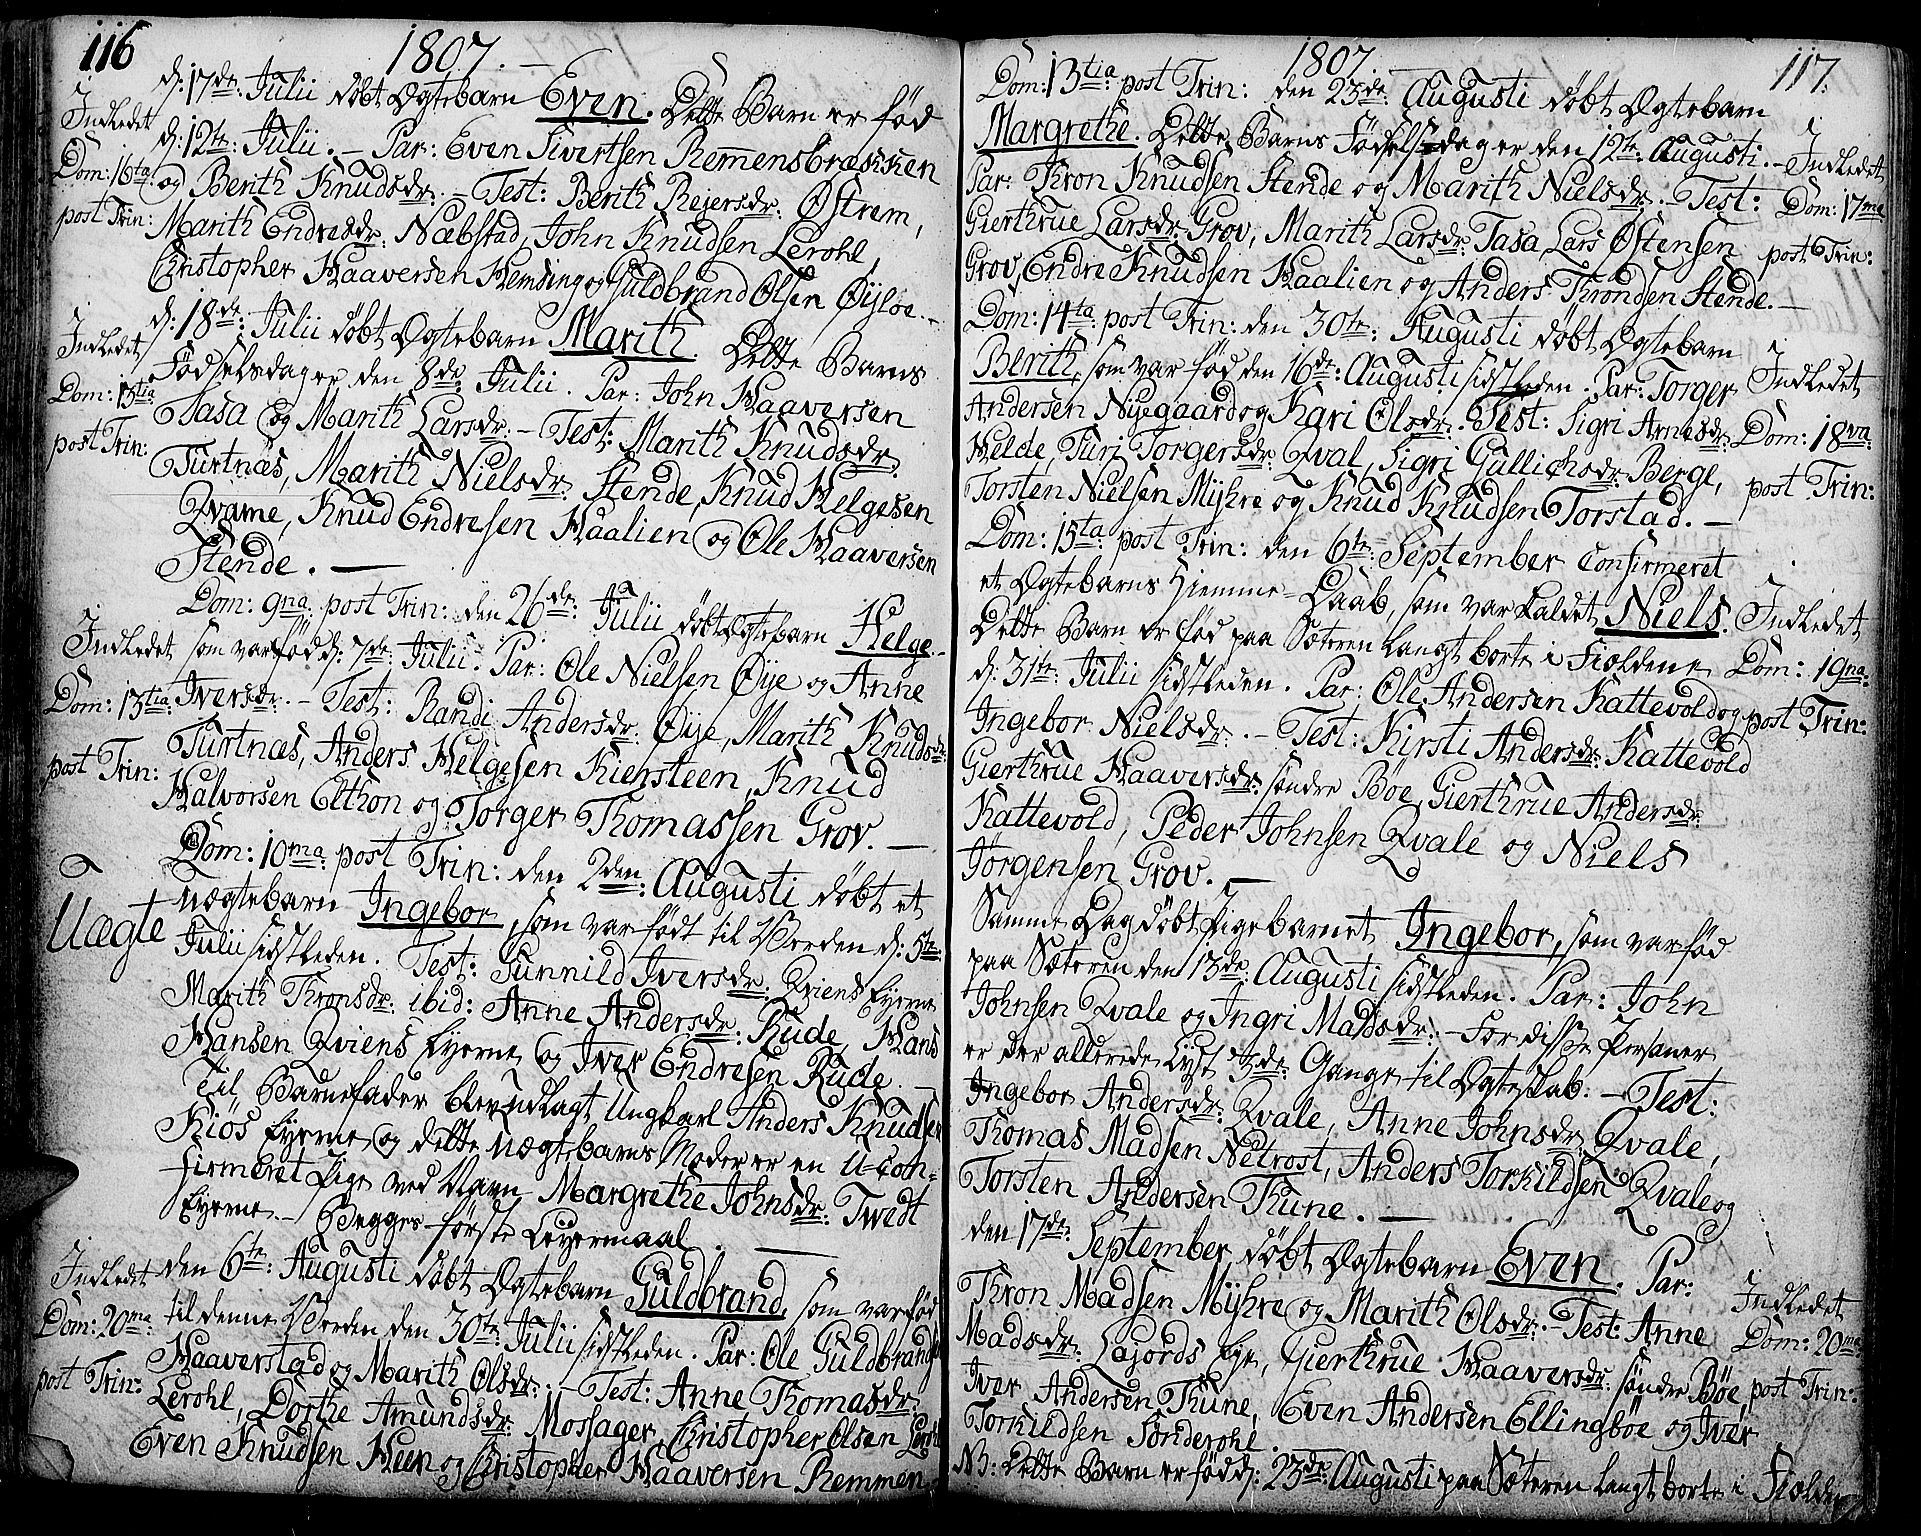 116
1807.
d: 17de: Julii döbt Ægtebarn Even. Dette Barn er föd
Indledet
d: 12te: Julii. – Par: Even Sivertsen Remensbrækken
Dom: 16ta
og Berith Knudsdr: – Test: Berith Reiersdr: Østrem,
post Trin:
Marith Endresdr: Næbstad, John Knudsen Lerohl,
Christopher Haaversen Hemsing og Guldbrand Olsen Øyloe. –
d: 18de: Julii döbt Ægtebarn Marith. Dette Barns
Indledet
Födselsdag er den 8de: Julii. Par: John Haaversen
Dom: 13tia
Tasa og Marith Larsdr: – Test: Marith Knudsdr:
post Trin:
Turtnæs, Marith Nielsdr: Stende, Knud Helgesen
Qvame, Knud Endresen Haalien og Ole Haaversen
Stende. –
Dom: 9na: post Trin: den 26de: Julii döbt Ægtebarn Helge
Indledet
som var föd d: 7de: Julii. Par: Ole Nielsen Øye og Anne
Dom: 13tia
Iversdr: – Test: Randi Andersdr: Øye, Marith Knudsdr:
Turtnæs, Anders Helgesen Kiersteen, Knud
post Trin:
Halvorsen Elthon og Torger Thomassen Grov. –
Dom: 10ma: post Trin: den 2den: Augusti döbt et
Uægte
uægtebarn Ingebor, som var födt til Verden d: 5te:
Julii sidstleden. Test: Gunnild Iversdr: Qviens Eyerne
Marith Thronsdr: ibid: Anne Andersdr: Rude, Hans
Hansen Qviens Eyerne og Iver Endresen Rude. –
Til Barnefader blev udlagt Ungkarl Anders Knudsen
Kiös Eyerne og dette uægtebarns Moder er en U-con-
firmeret Pige ved Navn Margrethe Johnsdr: Twedt
Eyerne. – Begges förste Leyermaal. –
den 6te: Augusti döbt Ægtebarn Guldbrand, som var föd
Indledet
til denne Verden den 30te: Julii sidstleden. Par: Ole Guldbrandsen
Dom: 20ma:
Haaverstad og Marith Olsdr: – Test: Anne Thomasdr:
post Trin:
Lerohl, Dorthe Amundsdr: Mossager, Christopher Olsen Lerohl
Even Knudsen Heen og Christopher Haaversen Remmen.
1807.
117.
Dom: 13tia post Trin: den 23de: Augusti döbt Ægtebarn
Margrethe. Dette Barns Födselsdag er den 12te: Augusti. – Indledet
Par: Thron Knudsen Stende og Marith Nielsdr: – Test:
Dom: 17me
Gierthrue Larsdr: Grov, Marith Larsdr: Tasa, Lars Østensen
post Trin:
Grov, Endre Knudsen Haalien og Anders Throndsen Stende. –
Dom: 14ta: post Trin: den 30te: Augusti döbt Ægtebarn
Berith, som var föd den 16de: Augusti sidstleden. Par: Torger
Indledet
Andersen Nyegaard og Kari Olsdr: Test: Sigri Arnesdr:
Dom: 18va:
Helde, Turi Torgersdr: Qval, Sigri Gullichsdr: Berge,
post Trin:
Torsten Nielsen Myhre og Knud Knudsen Torstad. –
Dom: 15ta: post Trin: den 6te: September confirmeret
et Ægtebarns Hiemme-Daab, som var kaldet Niels.
Indledet
Dette Barn er föd paa Sæteren langt borte i Fieldene
Dom: 19na:
d: 31te: Julii sidstleden. Par: Ole Andersen Kattevold og
post Trin:
Ingebor Nielsdr: – Test: Kirsti Andersdr: Kattevold
Gierthrue Haaversdr: söndre Böe, Gierthrue Andersdr:
Kattevold, Peder Johnsen Qvale og Niels
Jörgensen Grov. –
Samme Dag döbt Pigebarnet Ingebor, som var föd
paa Sæteren den 13de: Augusti sidstleden. Par: John
Johnsen Qvale og Ingri Madsdr: – For disse Personer
er der allerede lyst 3de: Gange til Ægteskab. – Test:
Ingebor Andersdr: Qvale, Anne Johnsdr: Qvale,
Thomas Madsen Netrost, Anders Torkildsen Qvale og
Torsten Andersen Thune. –
den 17de: September döbt Ægtebarn Even. Par:
Thron Madsen Myhre og Marith Olsdr: – Test: Anne
Indledet
Madsdr: Lajords Eye, Gierthrue Haaversdr: söndre Böe,
Dom: 20ma
Iver Andersen Thune, Even Andersen Ellingböe og Iver
post Trin:
Torkildsen Sönderohl.
NB: Dette Barn er föd d: 23de: Augusti paa Sæteren langt borte i Fieldene